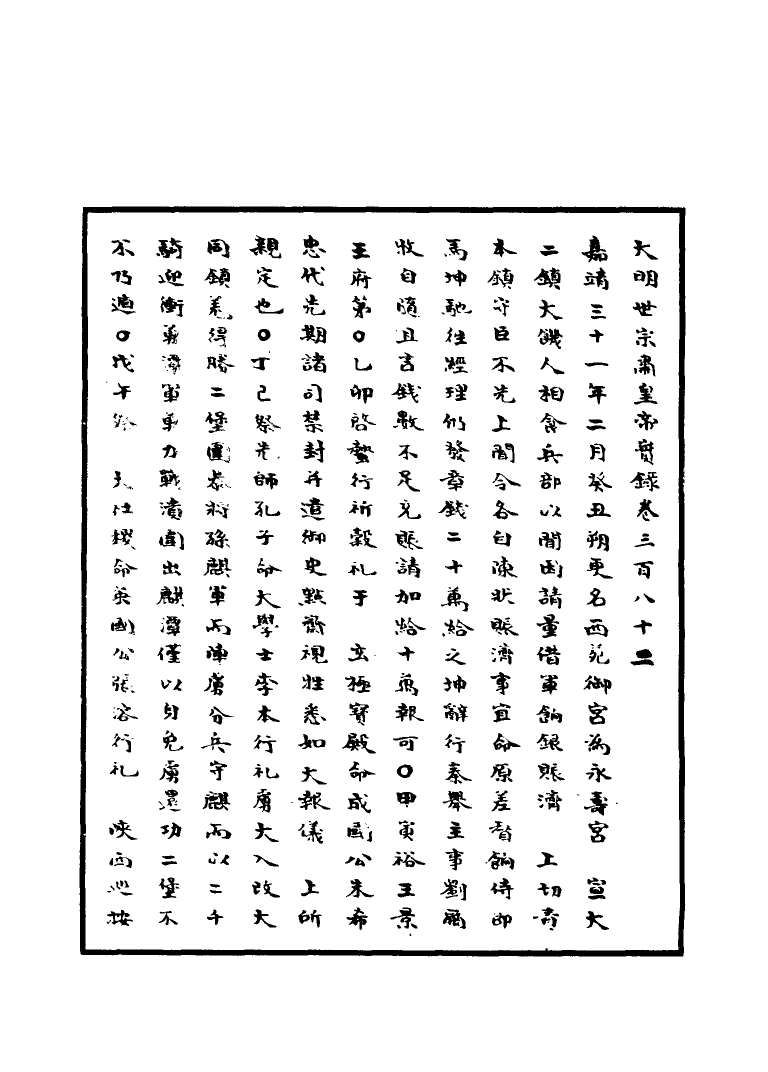 大明世宗肅皇帝實錄卷三百八十二
嘉靖三十一年二月癸丑朔更名西苑御宮為永壽宮 宣大
二鎮大饑人相食兵部以聞因請量借軍餉銀賑濟 上切責
本鎮守臣不先上聞令各自陳狀賑濟事宜命原差督餉侍郎
馬坤馳往經理仍發帑錢二十萬給之坤辭行奏舉主事劉爾
牧自隨且言錢數不足充賑請加給十萬報可○甲寅裕王景
王府第○乙卯啓蟄行祈穀礼于 玄極寶殿命成國公朱希
忠代先期諸司禁封并遣御史點齋視牲悉如大報儀 上所
親定也○丁巳祭先師孔子命大學士李本行礼虜大入改大
同鎮羌得勝二堡圍叅將孫麒軍兩陣虜分兵守麒而以二千
騎迎衝 潭軍 力戰潰圍出麒潭僅以身免虜還功二堡不
不乃遁○戊午祭 大社稷命英國公張溶行礼 陝西巡按